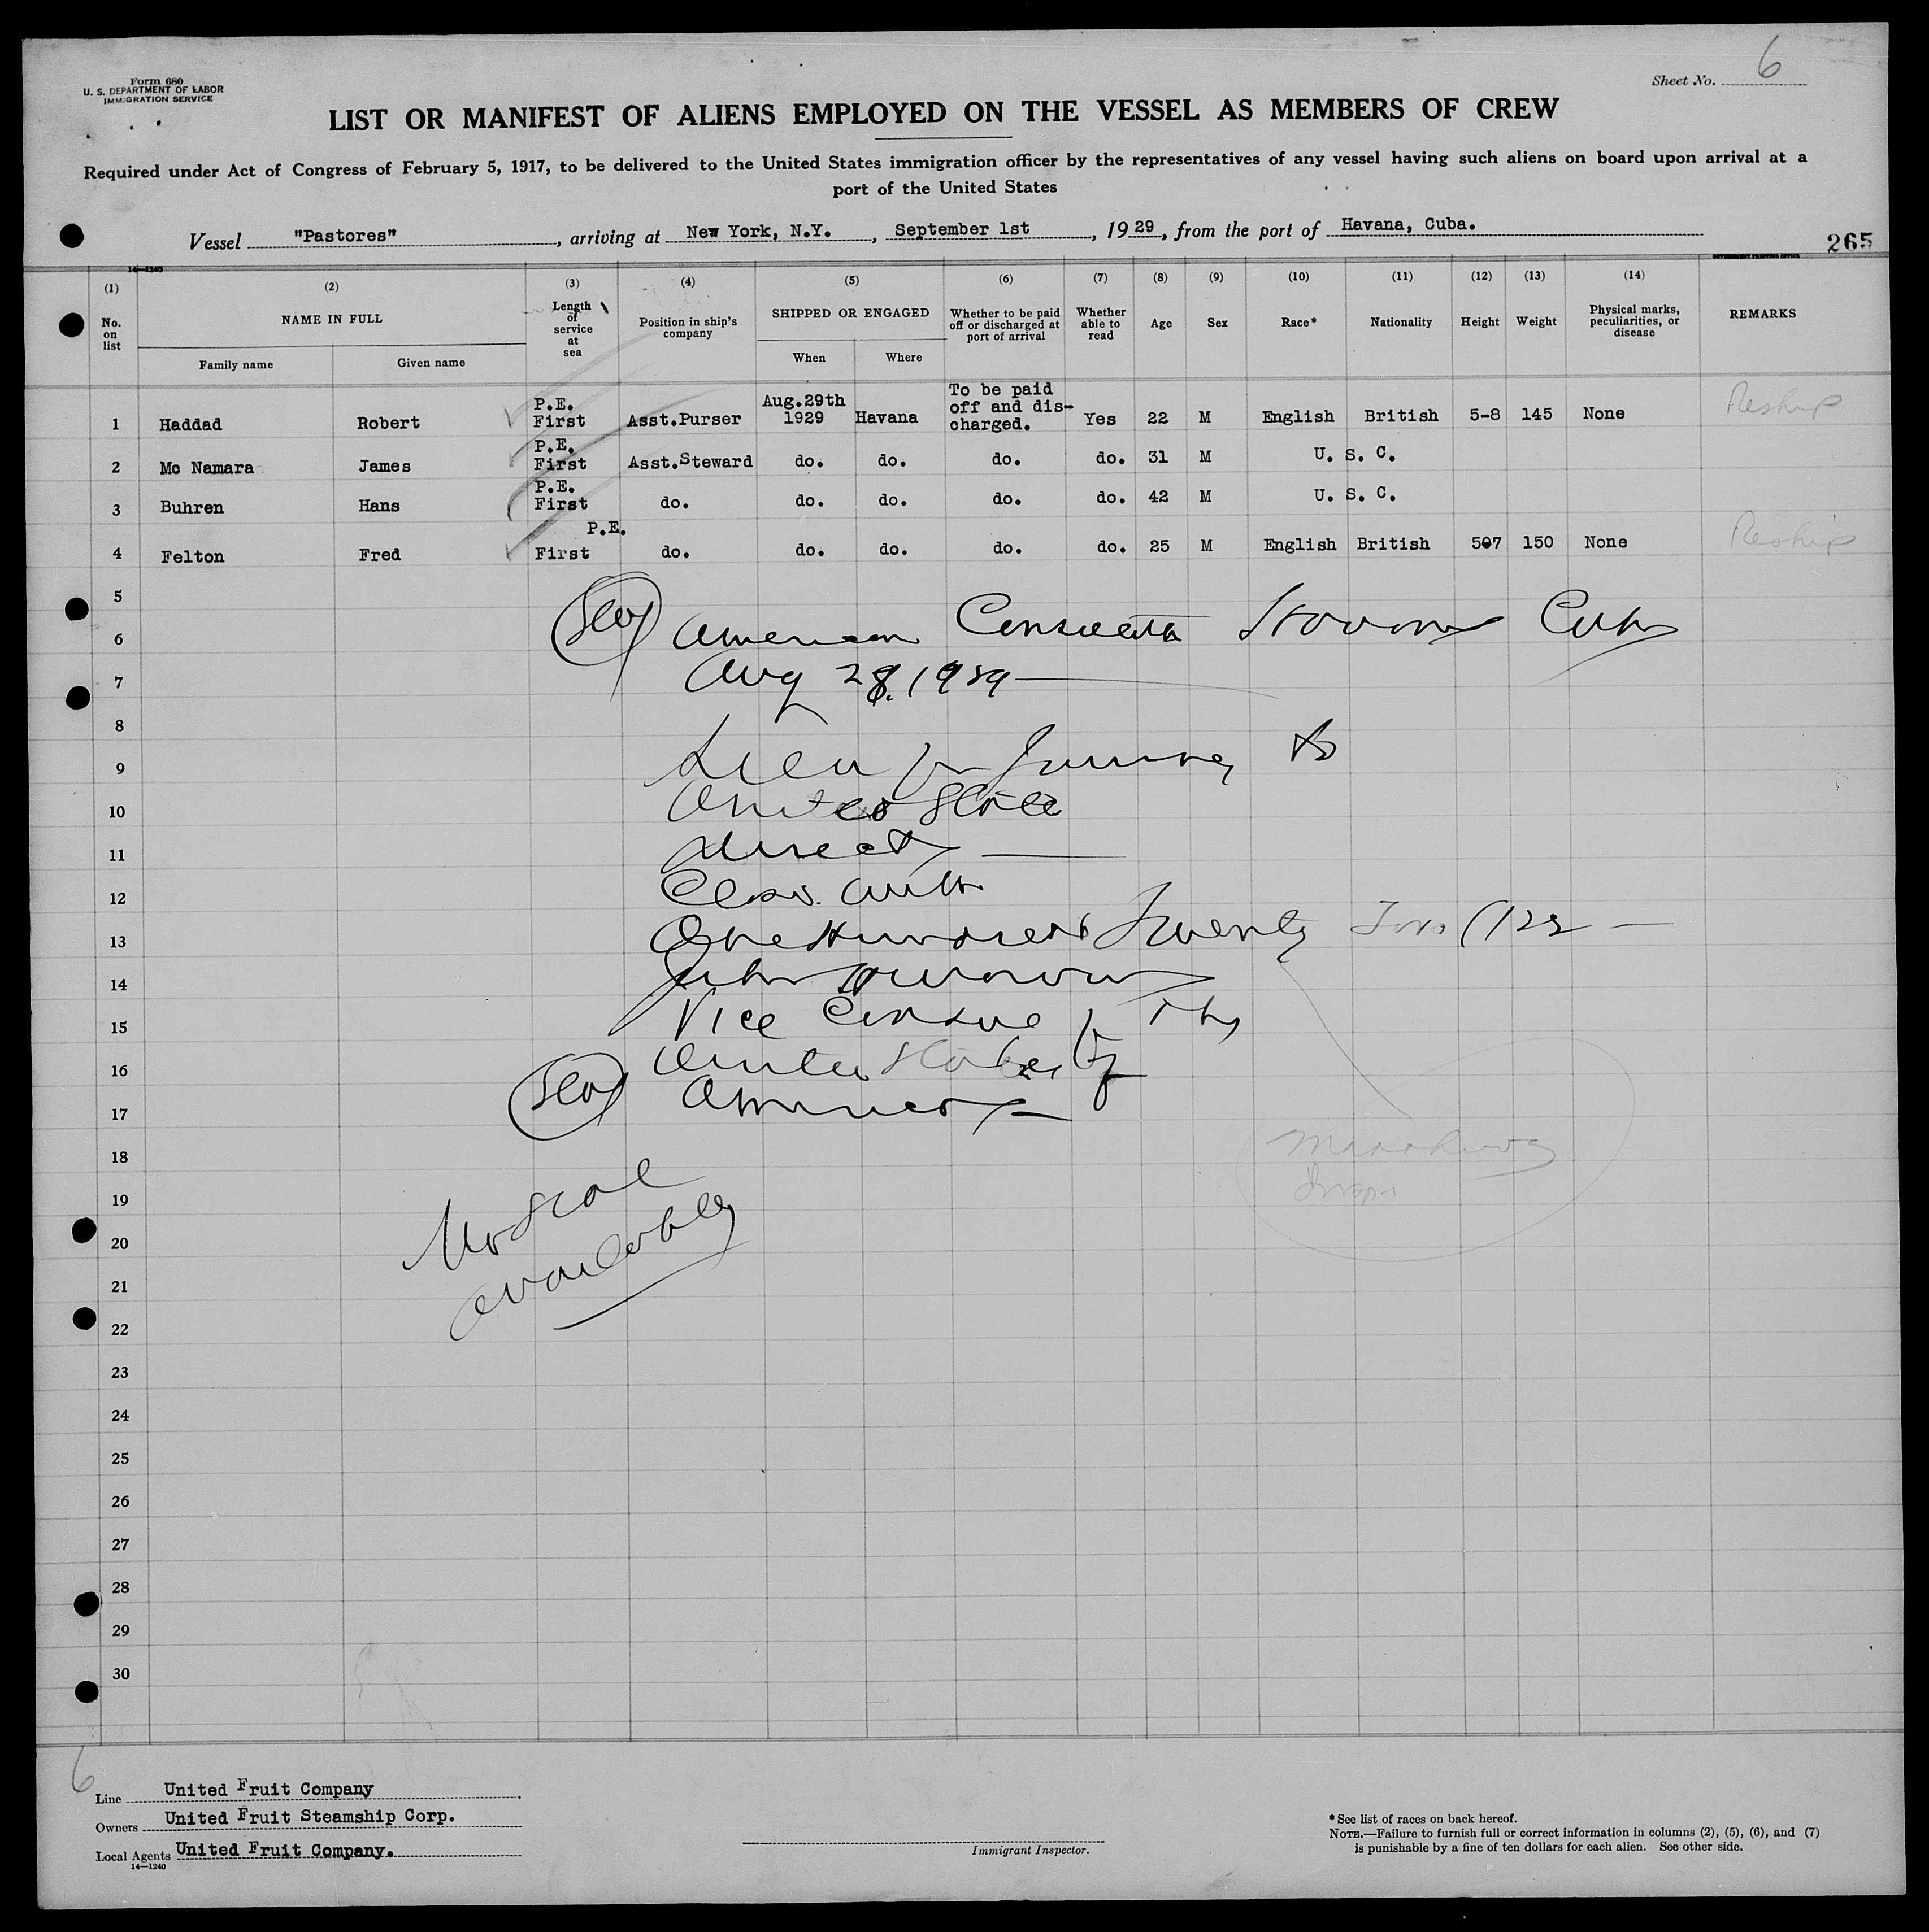 Form 680
U. S. DEPARTMENT OF LABOR
IMMIGRATION SERVICE
Sheet No. 6
LIST OR MANIFEST OF ALIENS EMPLOYED ON THE VESSEL AS MEMBERS OF CREW
Required under Act of Congress of February 5, 1917, to be delivered to the United States immigration officer by the representatives of any vessel having such aliens on board upon arrival at a
port of the United States
Vessel "Pastores", arriving at New York, N.Y., September 1st, 1929, from the port of Havana, Cuba.
265
14—1240
(1) (2) (3) (4) (5) (6) (7) (8) (9) (10) (11) (12) (13) (14)
No. on list
NAME IN FULL
Family name
Given name
Length of service at sea
Position in ship's company
SHIPPED OR ENGAGED
When
Where
Whether to be paid off or discharged at port of arrival
Whether able to read
Age
Sex
Race*
Nationality
Height
Weight
Physical marks, peculiarities, or disease
REMARKS
1 Haddad Robert P.E. First Asst.Purser Aug.29th 1929 Havana To be paid off and dis-charged. Yes 22 M English British 5-8 145 None Reship
2 Mc Namara James P.E. First Asst.Steward do. do. do. do. 31 M U. S. C.
3 Buhren Hans P.E. First do. do. do. do. do. 42 M U. S. C.
4 Felton Fred P.E. First do. do. do. do. do. 25 M English British 507 150 None Reship
5
6 American Consulate Havana Cuba
7 Aug 28, 1929
8
9 Seen for Journey to
10 United States
11 direct
12
13 One Hundred Twenty
14
15 Vice Consul of the
16 United States of
17 America
18
19 No seal
20 available
21
22
23
24
25
26
27
28
29
30
6
Line United Fruit Company
Owners United Fruit Steamship Corp.
Local Agents United Fruit Company.
14—1240
Immigrant Inspector.
*See list of races on back hereof.
NOTE.—Failure to furnish full or correct information in columns (2), (5), (6), and (7)
is punishable by a fine of ten dollars for each alien. See other side.